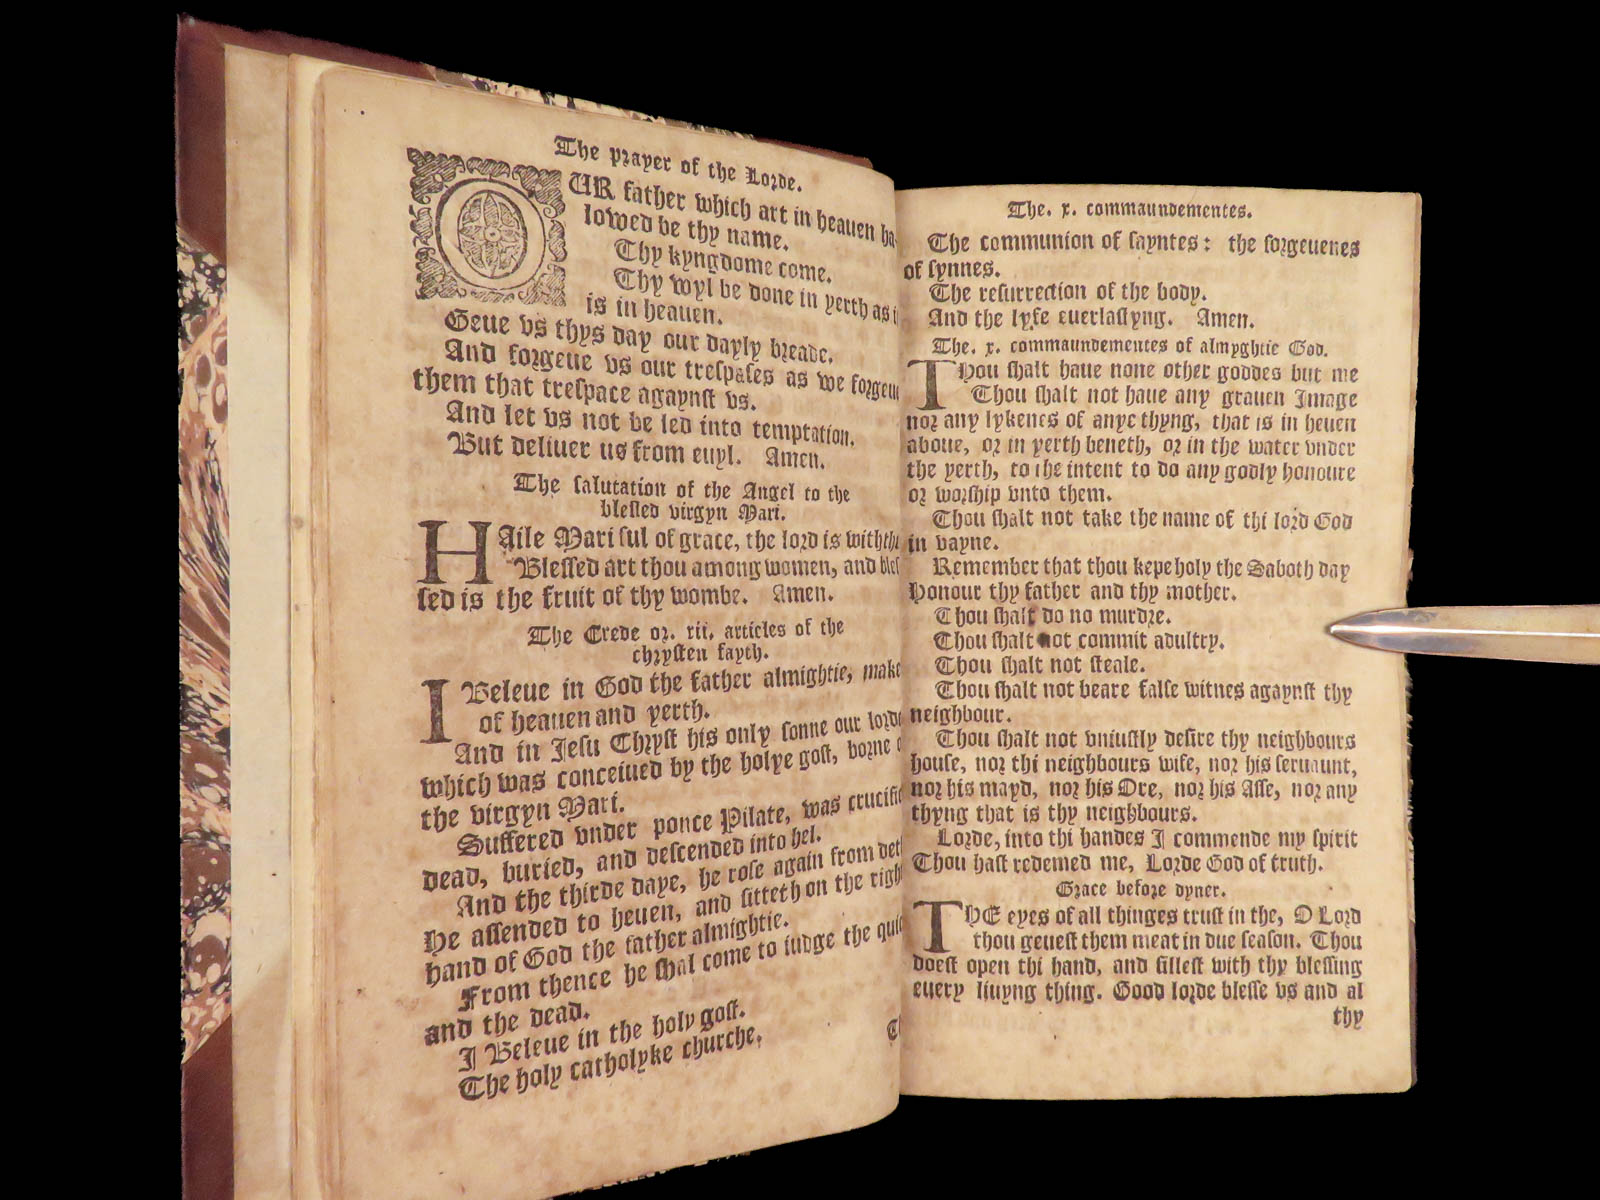 The prayer of the Lorde.
OUR father which art in heauen ha-
lowed be thy name.
Thy kyngdome come.
Thy wyl be done in yerth as i
is in heauen.
Geue vs thys day our dayly breade.
And forgeue vs our trespases as we forgeu
them that trespace agaynst vs.
And let vs not be led into temptation.
But deliuer us from euyl. Amen.
The salutation of the Angel to the
blessed virgyn Mari.
HAile Mari ful of grace, the lord is with th
Blessed art thou among women, and bles
sed is the fruit of thy wombe. Amen.
The Crede or. xii. articles of the
chrysten fayth.
I Beleue in God the father almightie, make
of heauen and yerth.
And in Jesu Chryst his only sonne our lord
which was conceiued by the holye gost, borne o
the virgyn Mari.
Suffered vnder ponce Pilate, was crucifi
dead, buried, and descended into hel.
And the thirde daye, he rose again from det
He assended to heuen, and sitteth on the righ
hand of God the father almightie.
From thence he shal come to iudge the quic
and the dead.
I Beleue in the holy gost.
The holy catholyke churche.
The. x. commaundementes.
The communion of sayntes: the forgeuenes
of synnes.
The resurrection of the body.
And the lyfe euerlastyng. Amen.
The. x. commaundementes of almyghtie God.
THou shalt haue none other goddes but me
Thou shalt not haue any grauen Image
nor any lykenes of anye thyng, that is in heuen
aboue, or in yerth beneth, or in the water vnder
the yerth, to the intent to do any godly honoure
or worship vnto them.
Thou shalt not take the name of thi lord God
in vayne.
Remember that thou kepe holy the Saboth day
Honour thy father and thy mother.
Thou shalt do no murdre.
Thou shalt not commit adultry.
Thou shalt not steale.
Thou shalt not beare false witnes agaynst thy
neighbour.
Thou shalt not vniustly desire thy neighbours
house, nor thi neighbours wife, nor his seruaunt,
nor his mayd, nor his Oxe, nor his Asse, nor any
thyng that is thy neighbours.
Lorde, into thi handes I commende my spirit
Thou hast redemed me, Lorde God of truth.
Grace before dyner.
THE eyes of all thinges trust in the, O Lord
thou geuest them meat in due season. Thou
doest open thi hand, and fillest with thy blessing
euery liuyng thing. Good lorde blesse vs and al
thy